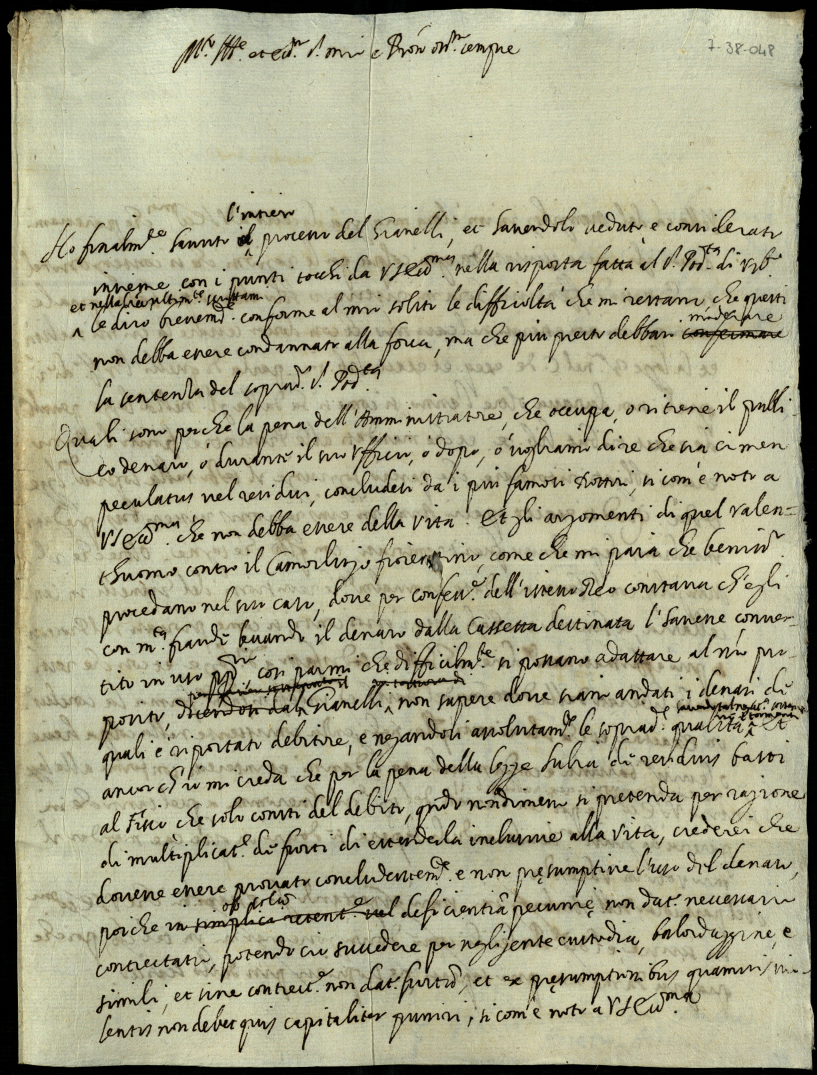 M.to Ill.re et ecc.te s.r mio e Pron oss.mo sempre
7-38-048
l'intiero
Ho finalm.te hauuto il processo del Gianelli, et hauendolo ueduto e considerato
insieme con i punti tocchi da VS ecc.ma nella risposta fatta al s.r Pod.tà di
et nella sua ultim.te
le diro breuem.te conforme al mio solito le difficoltà che mi restano, che questi
moderare
non debba essere condannato alla forca, ma che piu presto debbasi confermare
la sentenza del soprad.o s.r Pod.tà
Quali sono perche la pena dell'Amministratore, che occupa, o ritiene il publi-
co denaro, ò durante il suo vfficio, ò dopo, ò uogliamo dire che sia crimen
peculatus uel residui, concludesi da i piu famosi Dottori, si com'è noto a
VS ecc.ma che non debba essere della vita. Et gli argomenti di quel valen-
thuomo contro il Camorlingo fiorentino, come che mi paia che beniss.o
procedano nel suo caso, doue per confess.e dell'istesso Reo constaua ch'egli
con m.ta fraude leuando il denaro dalla Cassetta destinata l'hauesse conuer-
tito in uso pp.rio così parmi che difficilm.te si possano adattare al n'ro pro-
posito, dicendosi dal Gianelli, non sapere doue siano andati i denari de
quali è riportato debitore, e negandosi assolutam.te le soprad.e qualità, Et
ancor ch'io mi creda che per la pena della legge Iulia de residuis basti
al Fisco che solo consti del debito, q'ndo nondimeno si pretenda per ragione
di multiplicat.e de furti di estenderla inclusiue alla vita, crederei che
douesse essere prouato concludentem.e e non pręsumptiue l'uso del denaro,
ob solã
poiche in simplici retent.e uel deficientiã pecunię non dat.r necessario
contrectatio, potendo ciò succedere per negligente custodia, balordaggine, e
simili, et sine contrect.e non dat.r furtũ, et ex pręsumptionibus quamuis
sentis non debet quis capitaliter puniri, si com'è noto a VS ecc.ma